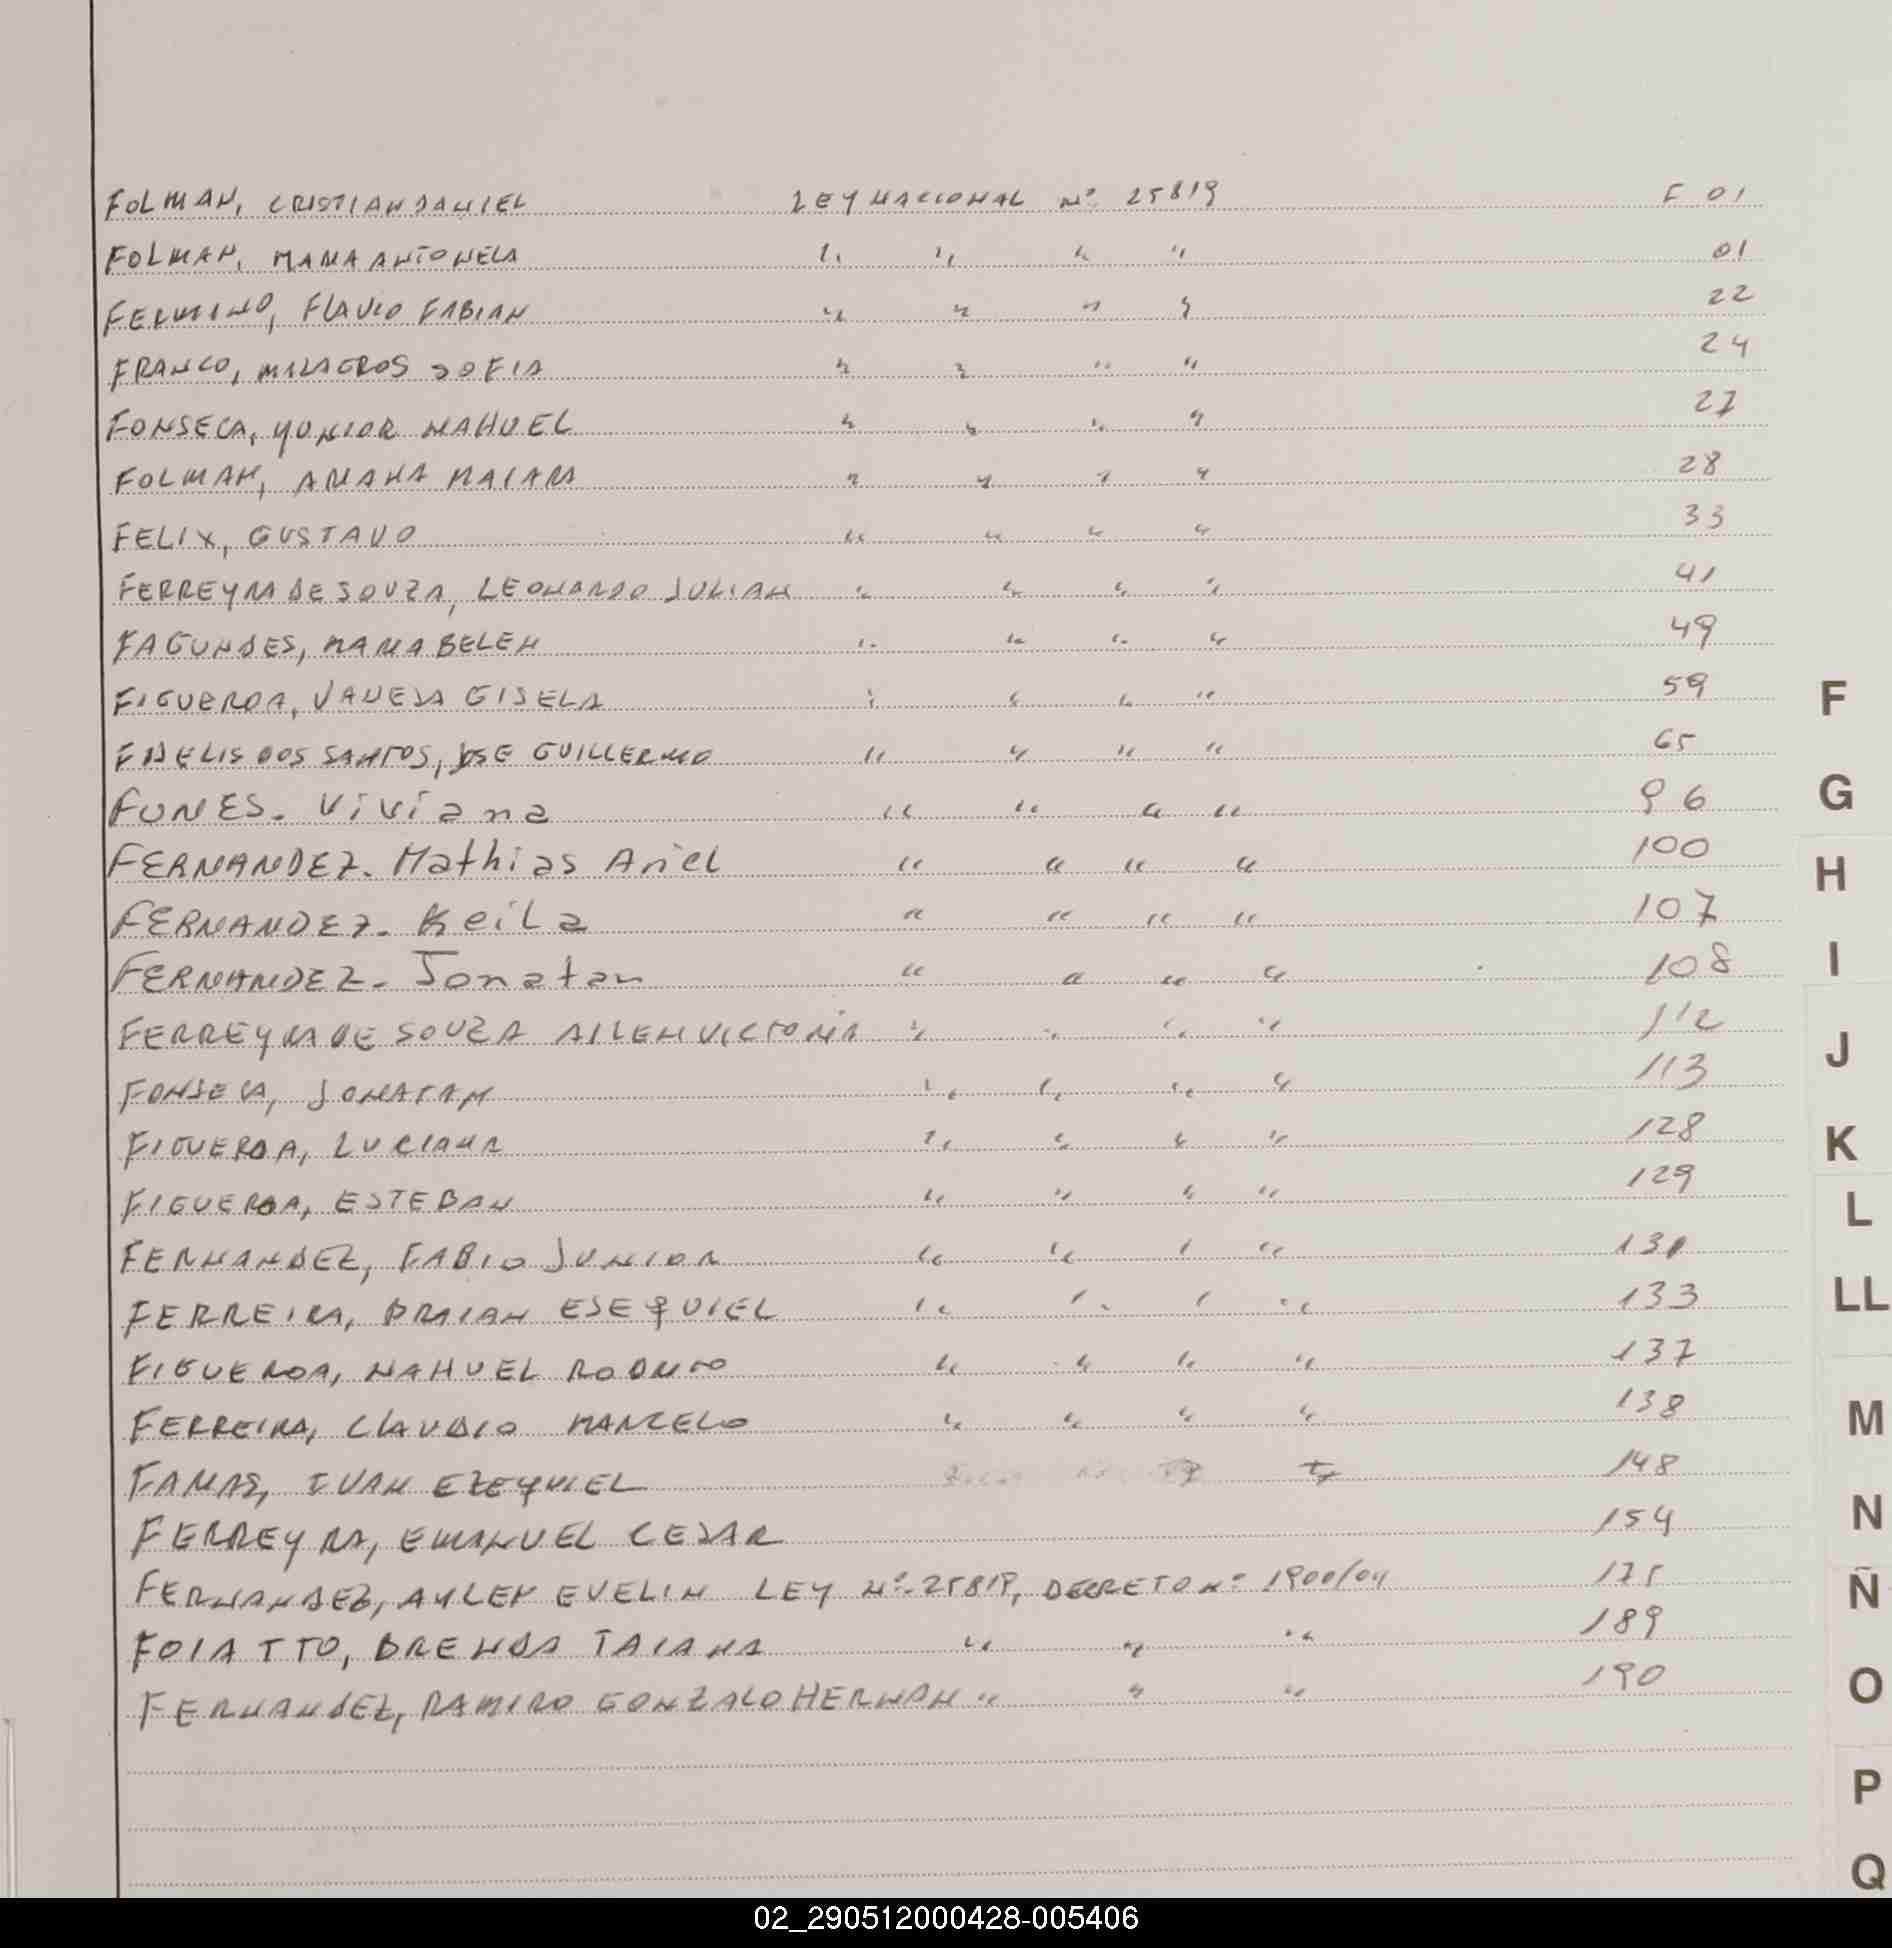 FOLMAN, CRISTIAN DANIEL LEY NACIONAL Nº 25819 F 01
FOLMAN, MARIA ANTONELA " " " " 01
FERMINO, FLAVIO FABIAN " " " " 22
FRANCO, MILAGROS SOFIA " " " " 24
FONSECA, YUNIOR NAHUEL " " " " 27
FOLMAN, AMANA MAIARA " " " " 28
FELIX, GUSTAVO " " " " 33
FERREYRA DE SOUZA, LEONARDO JULIAN " " " " 41
FAGUNDES, MARIA BELEN " " " " 49
FIGUEROA, VANESA GISELA " " " " 59
FIDELIS DOS SANTOS, JOSE GUILLERMO " " " " 65
FUNES. Viviana " " " " 96
FERNANDEZ. Mathias Ariel " " " " 100
FERNANDEZ. Keila " " " " 107
FERNANDEZ. Jonatan " " " " 108
FERREYRA DE SOUZA AILEN VICTORIA " " " " 112
FONSECA, JONATAN " " " " 113
FIGUEROA, LUCIANA " " " " 128
FIGUEROA, ESTEBAN " " " " 129
FERNANDEZ, FABIO JUNIOR " " " " 131
FERREIRA, BRAIAN ESEQUIEL " " " " 133
FIGUEROA, NAHUEL RODRIGO " " " " 137
FERREIRA, CLAUDIO MARCELO " " " " 138
FARIAS, IVAN EZEQUIEL 148
FERREYRA, EMANUEL CESAR 154
FERNANDEZ, AYLEN EVELIN LEY Nº 25819, DECRETO Nº 1900/04 175
FOIATTO, BRENDA TAIANA " " " 189
FERNANDEZ, RAMIRO GONZALO HERNAN " " " 190
F
G
H
I
J
K
L
LL
M
N
Ñ
O
P
Q
02_290512000428-005406